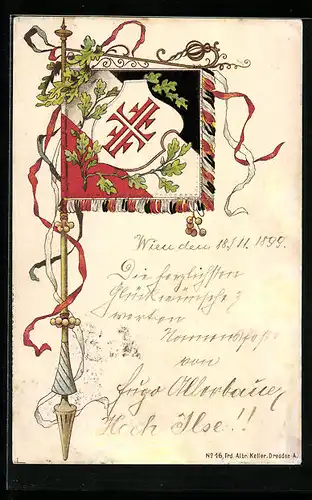 Wien den 18./11. 1899.
Die herzlichsten
Glückwünsche z
werten
Namensfeste
von
Hugo Ollerbauer
Hoch Ilse!!
No 46, Frd. Albr. Keller, Dresden A.